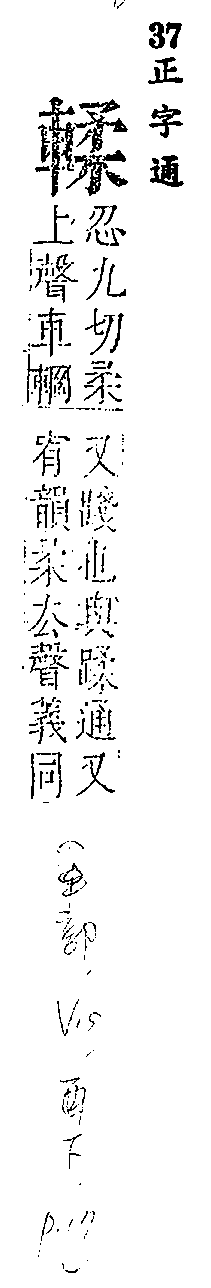 37 正字通
輮
忍九切柔
上聲車輞
又踐也與蹂通又
宥韻柔去聲義同
(車部, V.15, 酉下, p.17)